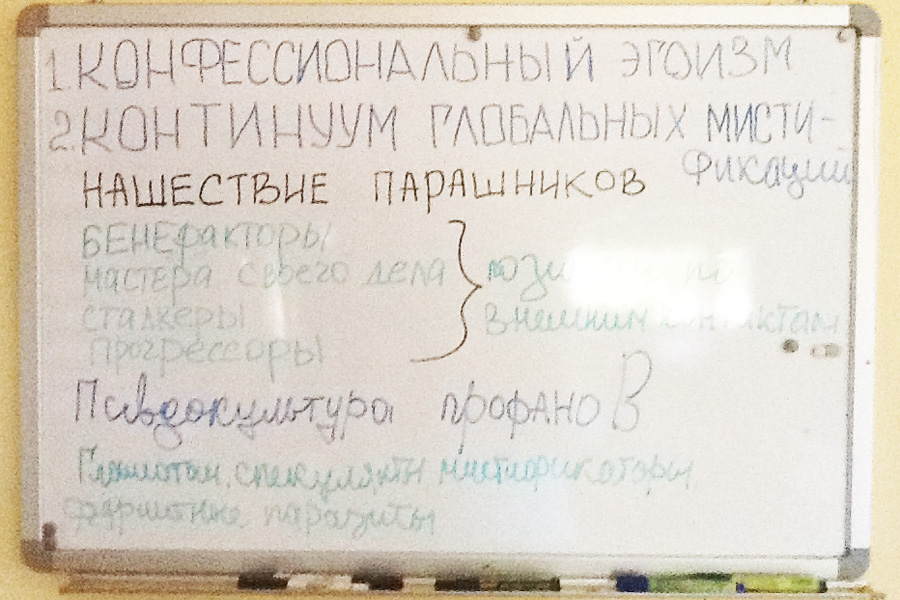 1. КОНФЕССИОНАЛЬНЫЙ ЭГОИЗМ
2. КОНТИНУУМ ГЛОБАЛЬНЫХ МИСТИ-
ФИКАЦИЙ
НАШЕСТВИЕ ПАРАШНИКОВ
БЕНЕфакторы
мастера своего дела
сталкеры
прогрессоры
по
внешним контактам
Псевдокультура профаноВ
спекулянты мистификаторы,
паразиты